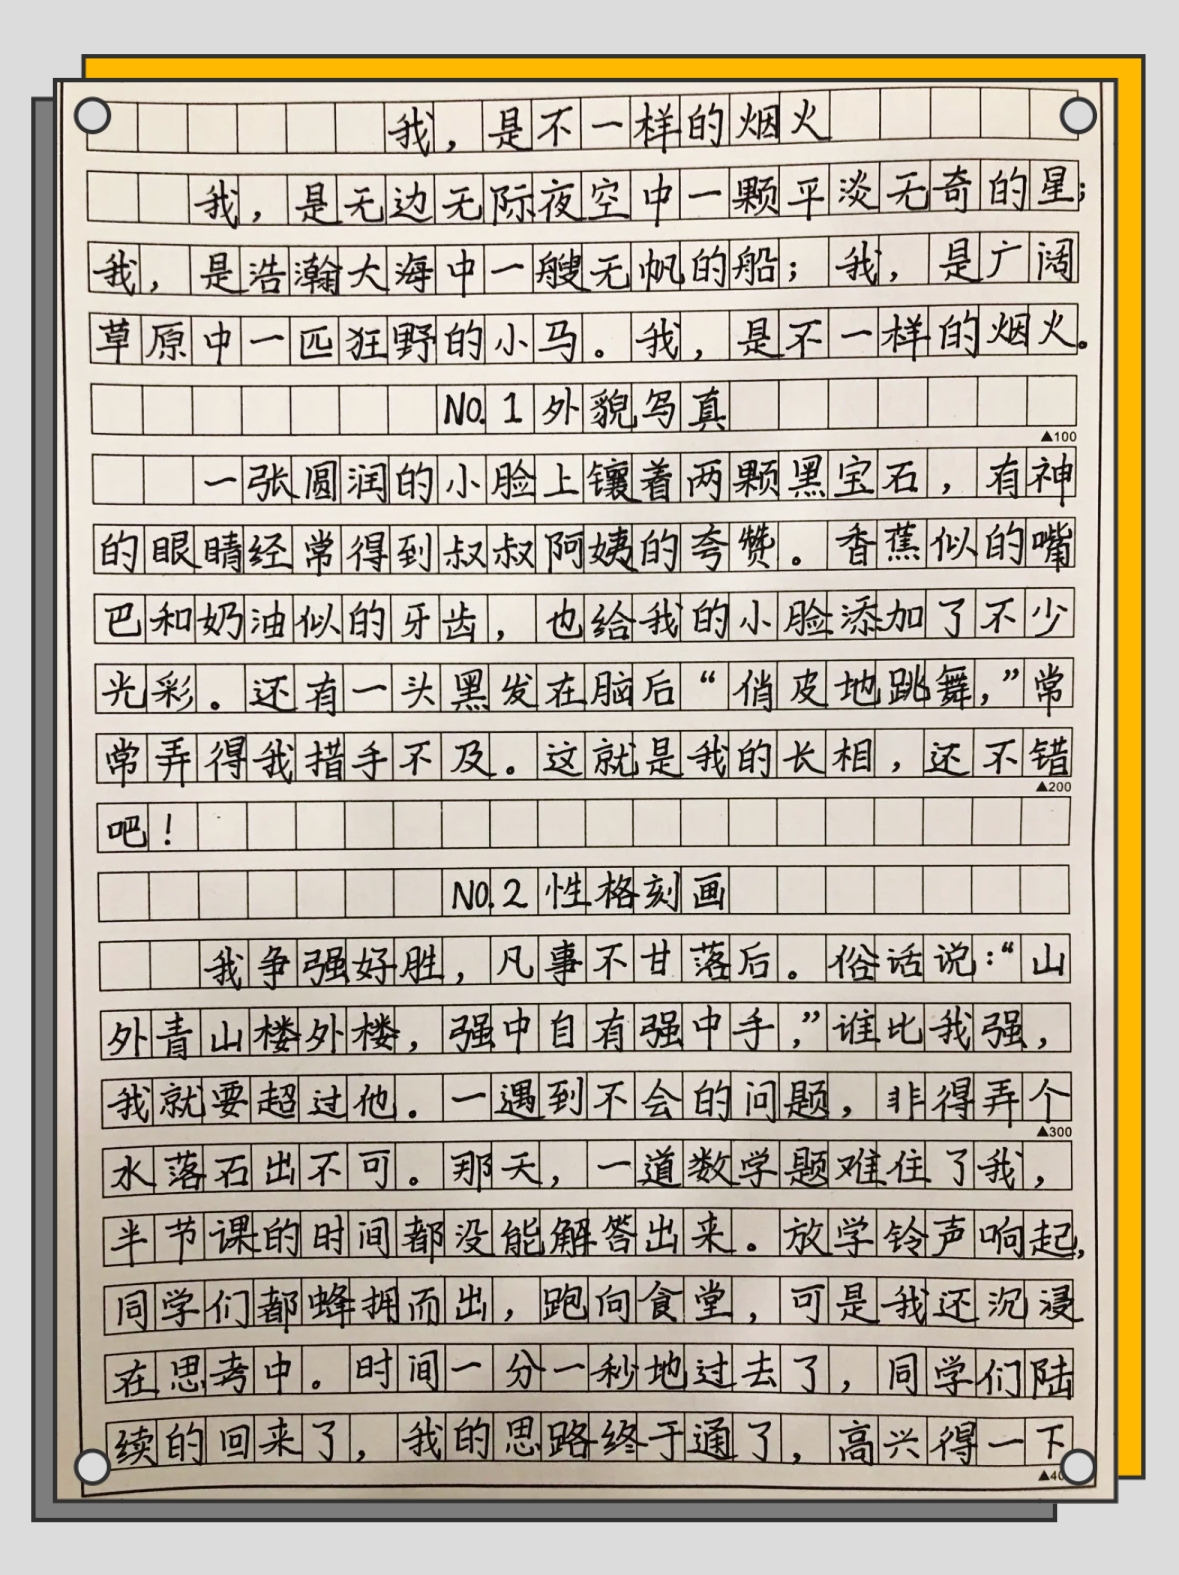 我，是不一样的烟火
我，是无边无际夜空中一颗平淡无奇的星；
我，是浩瀚大海中一艘无帆的船；我，是广阔
草原中一匹狂野的小马。我，是不一样的烟火。
NO.1外貌写真
▲100
一张圆润的小脸上镶着两颗黑宝石，有神
的眼睛经常得到叔叔阿姨的夸赞。香蕉似的嘴
巴和奶油似的牙齿，也给我的小脸添加了不少
光彩。还有一头黑发在脑后“俏皮地跳舞，”常
常弄得我措手不及。这就是我的长相，还不错
▲200
吧！
NO.2性格刻画
我争强好胜，凡事不甘落后。俗话说：“山
外青山楼外楼，强中自有强中手，”谁比我强，
我就要超过他。一遇到不会的问题，非得弄个
▲300
水落石出不可。那天，一道数学题难住了我，
半节课的时间都没能解答出来。放学铃声响起，
同学们都蜂拥而出，跑向食堂，可是我还沉浸
在思考中。时间一分一秒地过去了，同学们陆
续的回来了，我的思路终于通了，高兴得一下